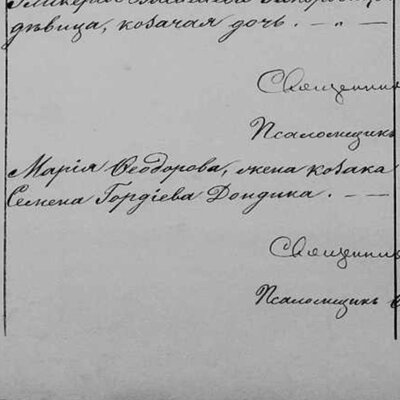 дѣвица, козачая дочь. — „ —
Священник
Псаломщикъ
Марія Ѳеодорова, жена козака
Семена Гордіева Дондика. — —
Священник
Псаломщикъ